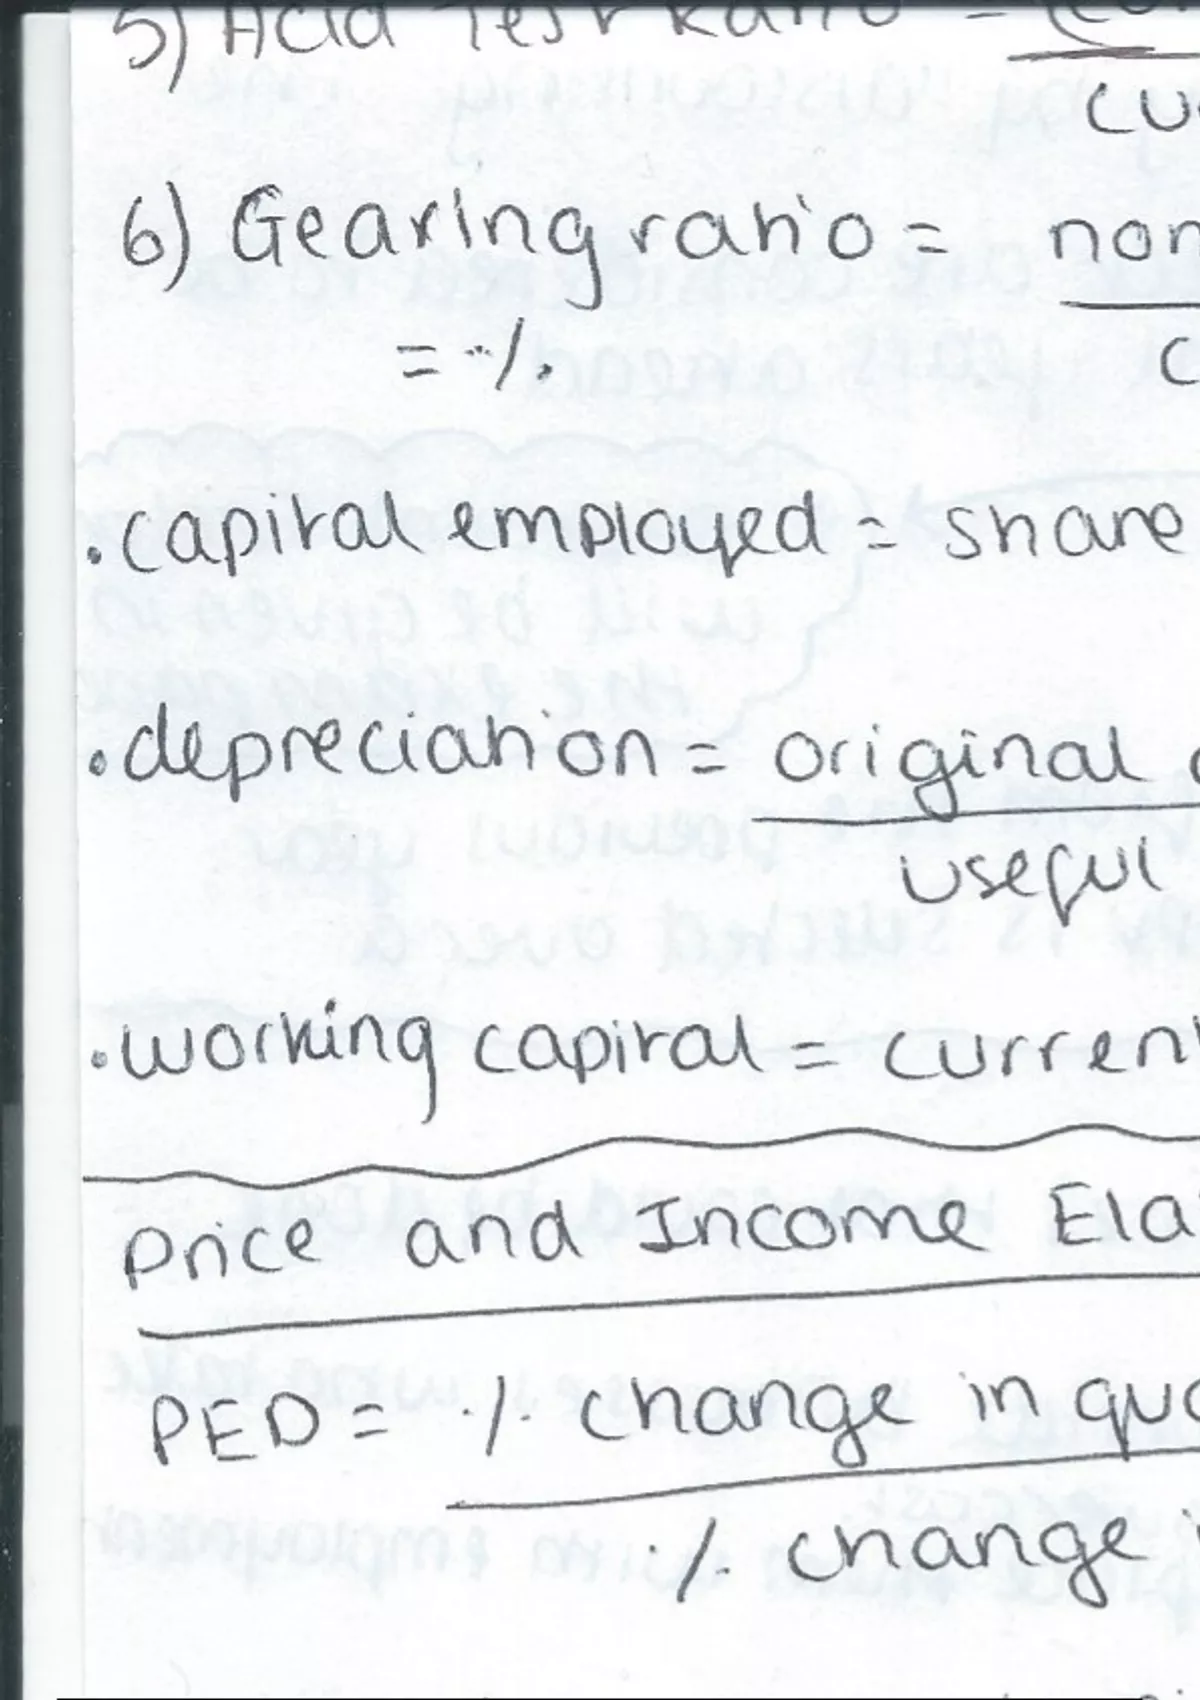 5) Acid Test Ratio =
6) Gearing ratio = non
= %
. capital employed = share
. depreciation = original
useful
. working capital = current
Price and Income Ela
PED = % change in qua
% change